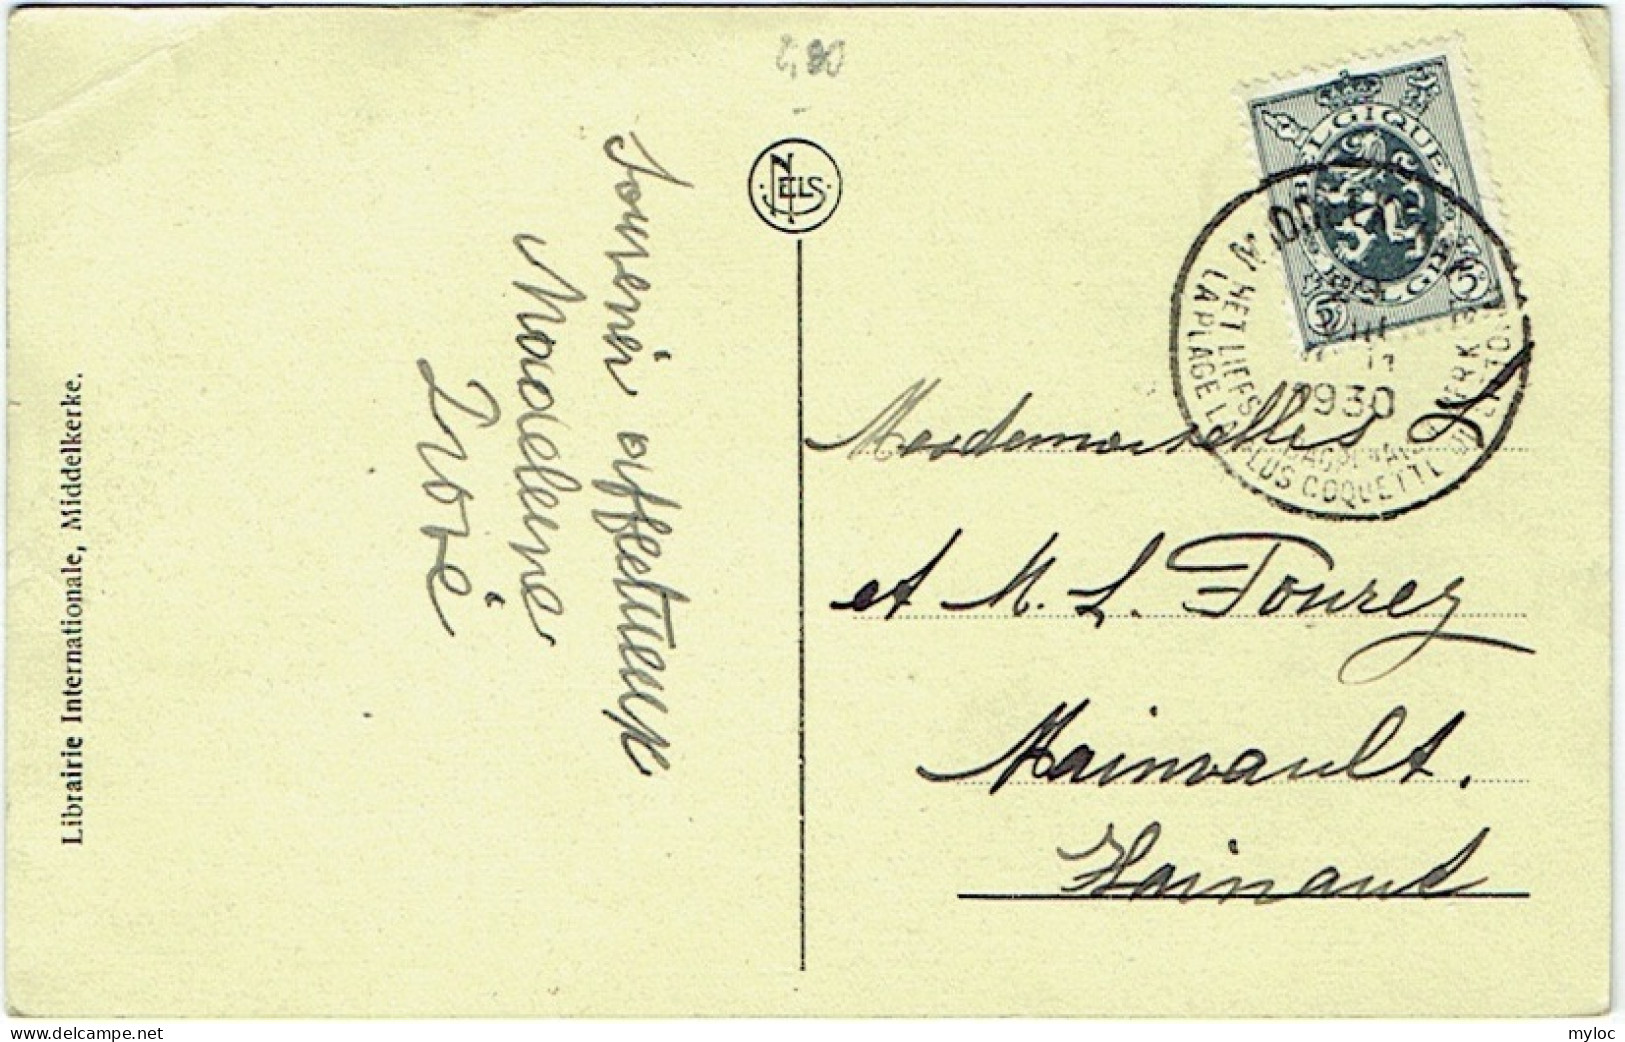 2,80
NELS
BELGIQUE
BELGIË
5
5
1930
HET LIEFS
LA PLAGE LA PLUS COQUETTE
Souvenir affectueux
Madeleine
Mesdemoiselles L
et M. L. Fourez
Mainvault.
Hainaut
Librairie Internationale, Middelkerke.
www.delcampe.net
myloc